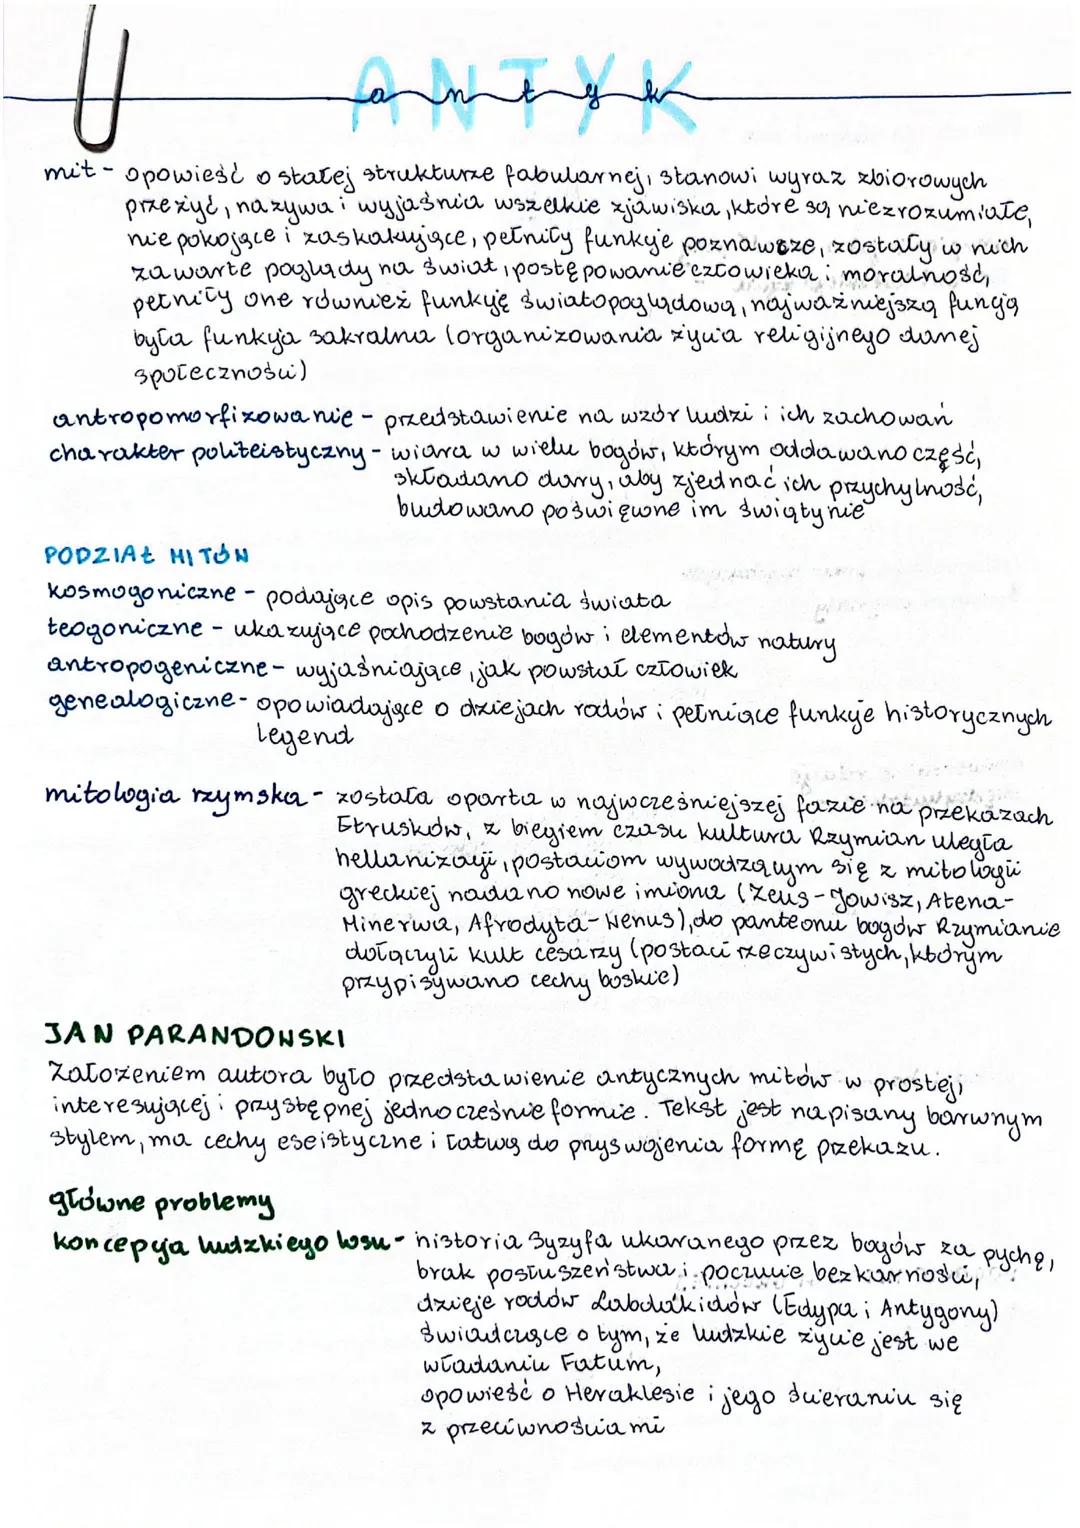 ANTYK
antyk
mit - opowieść o stałej strukturze fabularnej, stanowi wyraz zbiorowych
przeżyć, nazywa i wyjaśnia wszelkie zjawiska, które są niezrozumiałe,
niepokojące i zaskakujące, pełniły funkcje poznawcze, zostały w nich
zawarte poglądy na świat, postępowanie człowieka i moralność,
pełniły one również funkcję światopoglądową, najważniejszą funcją
była funkcja sakralna (organizowania życia religijnego danej
społeczności)
antropomorfizowanie - przedstawienie na wzór ludzi i ich zachowań
charakter politeistyczny - wiara w wielu bogów, którym oddawano cześć,
składano dary, aby zjednać ich przychylność,
budowano poświęcone im świątynie
PODZIAŁ MITÓW
kosmogoniczne - podające opis powstania świata
teogoniczne - ukazujące pochodzenie bogów i elementów natury
antropogeniczne - wyjaśniające, jak powstał człowiek
genealogiczne - opowiadające o dziejach rodów i pełniące funkcje historycznych
legend
mitologia rzymska - została oparta w najwcześniejszej fazie na przekazach
Etrusków, z biegiem czasu kultura Rzymian uległa
hellanizacji, postaciom wywodzącym się z mitologii
greckiej nadano nowe imiona (Zeus - Jowisz, Atena -
Minerwa, Afrodyta - Wenus), do panteonu bogów Rzymianie
dołączyli kult cesarzy (postaci rzeczywistych, którym
przypisywano cechy boskie)
JAN PARANDOWSKI
Założeniem autora było przedstawienie antycznych mitów w prostej,
interesującej i przystępnej jednocześnie formie. Tekst jest napisany barwnym
stylem, ma cechy eseistyczne i łatwą do przyswojenia formę przekazu.
główne problemy
koncepcja ludzkiego losu - historia Syzyfa ukaranego przez bogów za pychę,
brak posłuszeństwa i poczucie bezkarności,
dzieje rodów Labdakidów (Edypa i Antygony)
świadczące o tym, że ludzkie życie jest we
władaniu Fatum,
opowieść o Heraklesie i jego ścieraniu się
z przeciwnościami